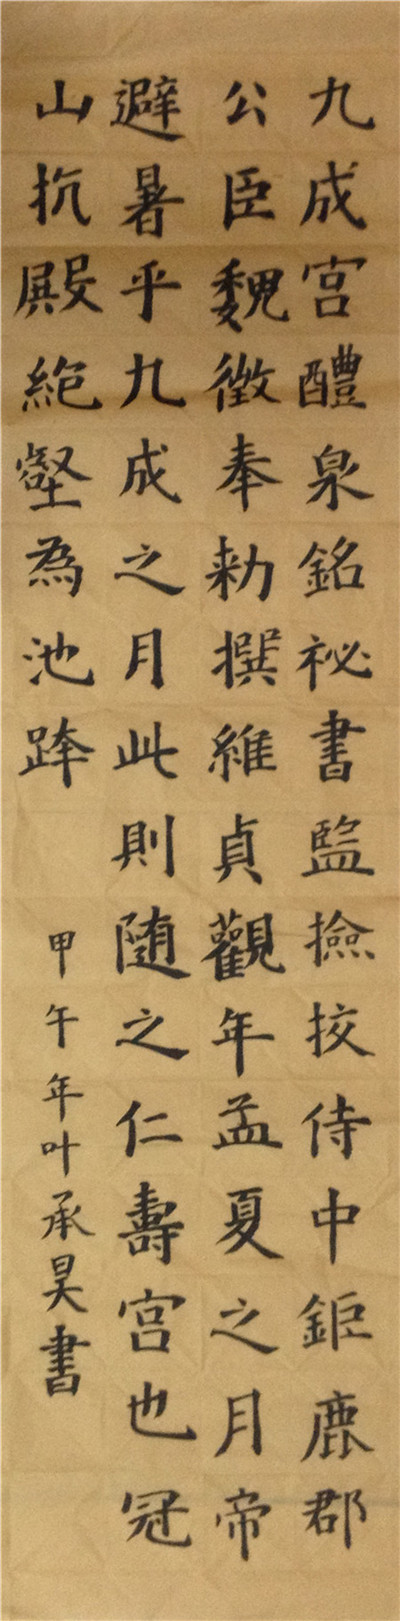 九成宫醴泉銘祕書監撿挍侍中鉅鹿郡
公臣魏徵奉勅撰維貞觀年孟夏之月帝
避暑乎九成之月此則随之仁壽宫也冠
山抗殿絶壑為池跨
甲午年叶承昊書